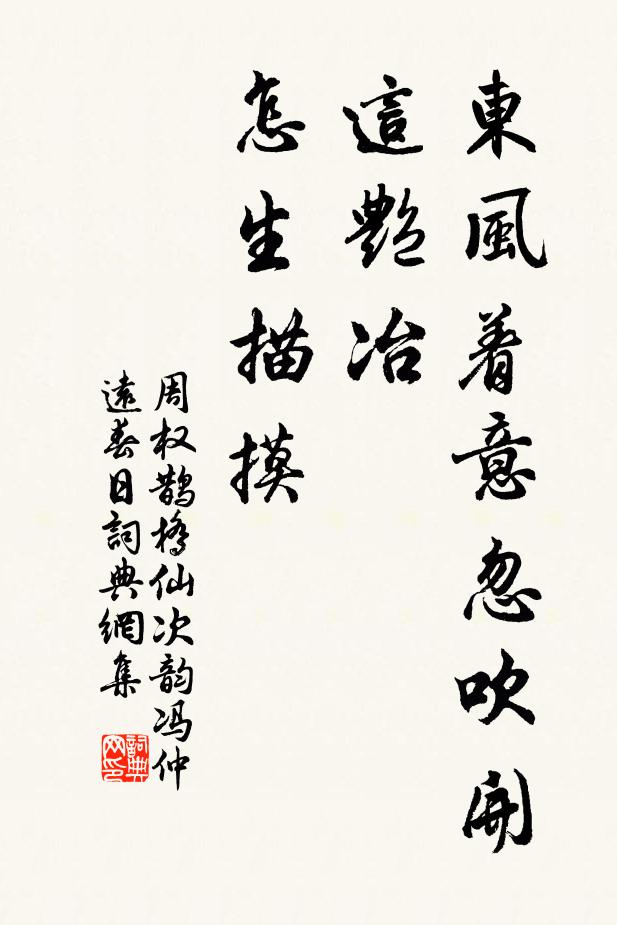 東風着意忽吹開
這艷冶
怎生描摸
周权鹊橋仙次韵冯仲
遠春日詞典網集
詞典网印